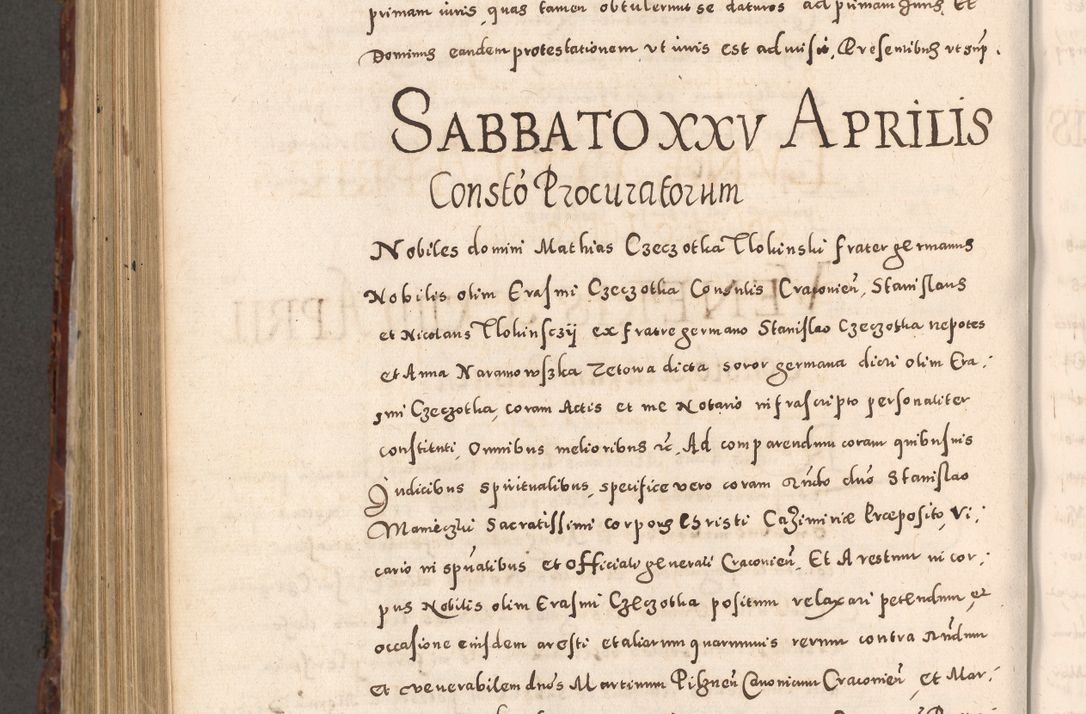 primam iuris, quas tamen obtulerunt se daturos ad primam Juris, Et
Dominus eandem protestationem ut iuris est admisit, Presentibus ut sup.
SABBATO XXV APRILIS
Constō Procuratorum
Nobiles domini Mathias Czeczotka Tlokinski frater germanus
Nobilis olim Erasmi Czeczotka Consulis Cracovieñ, Stanislaus
et Nicolaus Tlokinsczij ex fratre germano Stanislao Czeczotka nepotes
et Anna Naramowszka Zetowa dicta soror germana dicti olim Era:
smi Czeczotka, coram Actis et me Notario infrascripto personaliter
constituti, Omnibus melioribus etc. Ad comparendum coram quibusuis
Judicibus spiritualibus, specifice vero coram Rñdo dño Stanislao
Manieczki Sacratissimi corporis Christi Cazimiriæ Præposito, Vi:
cario in spũalibus et Officiale generali Cracovieñ, Et Arestum in cor:
pus Nobilis olim Erasmi Czeczotka positum relaxari petendum, et
occasione eiusdem aresti et aliarum quarumuis rerum contra Rñdum
et venerabilem dños Martinum Pilzneñ Canonicum Cracovieñ, et Mar: